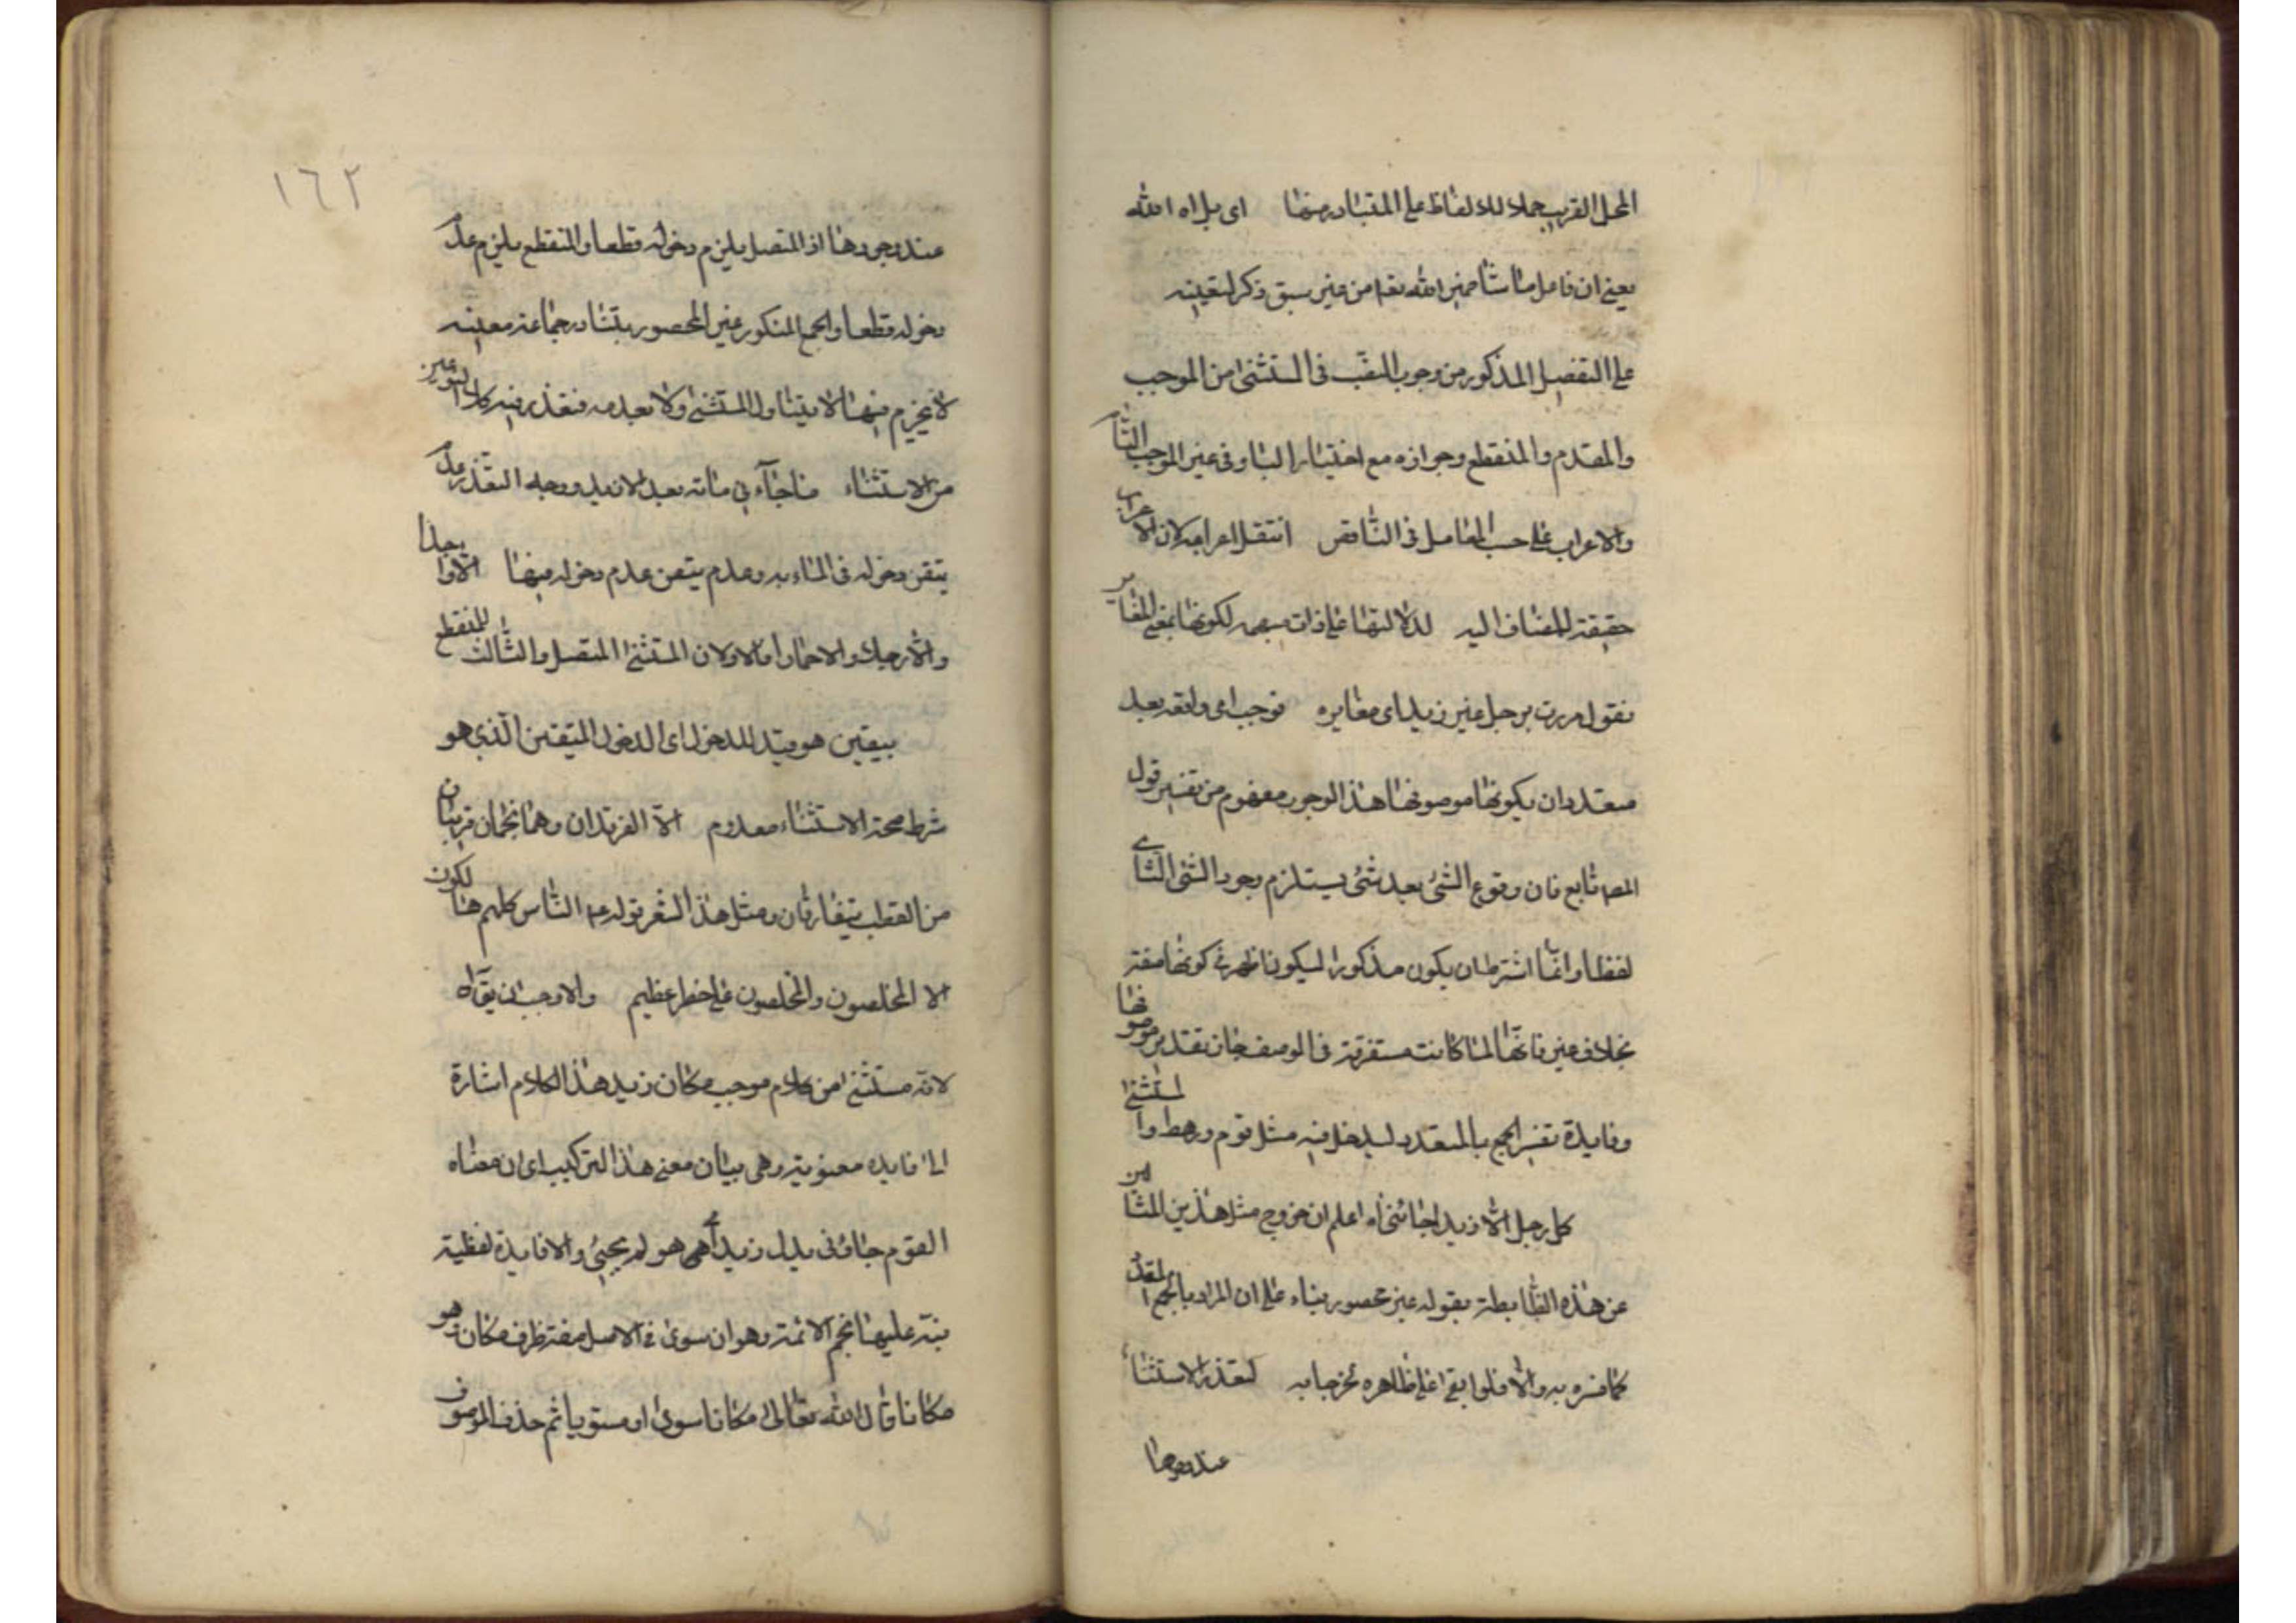 المحل القريب حملا للالفاظ على المتبادر منها اى بل اه الله
يعنى ان فاعل ماشا ضمير الله تعا من غير سبق ذكر لتعينه
على التفصيل المذكور من وجوب النصب فى المستثنى من الموجب
والمقدم والمنقطع وجوازه مع اختيار البدل وفى غير الموجب التام
والاعراب على حسب العامل فى الناقص انتقل اعرابه لان الاعراب
حقيقة للمضاف اليه لدلالتها على ذات مبهمه لكونها بمعنى المغاير
تقول مررت برجل غير زيد اى مغايره توجب اى واقعه بعد
متعدد ان يكون لها موصوفها هذا الوجود مفهوم من تفسير قول
المص تابع فان وقوع الشئ بعد شئ يستلزم وجود الشئ الثانى
لفظا وانما اشترط ان يكون مذكورا ليكون اظهر فى كونها صفة
بخلاف غير فانها لما كانت مستقرة فى الوصف جاز تقدير موصوفها
وفايدة تفسير الجمع بالمتعدد ليدخل فيه مثل قوم ورهط والمستثنى
كل رجل الا زيد اجائنى اه اعلم ان خروج مثل هذين المثالين
عن هذه الضابطة بقوله غير محصور بناء على ان المراد بالجمع المتعدد
كما فسره به والا فلو ابقى على ظاهره لخرجا به لتعذر الاستثناء
عند وجودها
١٦٢
عند وجودها اذ المتصل يلزم دخوله قطعا والمنقطع يلزم عدم
دخوله قطعا والجمع المنكور غير المحصور يتناول جماعة معينه
لا يجزم فيها لا بتناول المستثنى ولا بعدمه فتعذر فيه كلا النوعين
من الاستثناء ما جاآنى مائة بعد الا زيد ووجه التعذر عدم
تيقن دخوله فى الماءيه وعدم تيقن عدم دخوله فيها الا واحدا
والا رجلا والا حمارا الاولان المستثنى المتصل والثالث للمنقطع
بيقين هو قيد للدخول اى الدخول المتيقن الذى هو
شرط صحة الاستثناء معدوم الا الفرقدان وهما نجمان قريبان
من القطب يتفارقان ومثل هذا الشعر قوله عم الناس كلهم هالكون
الا المخلصون والمخلصون على خطر عظيم والا وجب ان يقآه
لانه مستثنى من كلام موجب مكان زيد هذا الكلام اشارة
الى فايده معنوية وهى بيان معنى هذا التركيب اى ان معناه
القوم جاؤنى بدل زيد اى هو لم يجئ والا فايدة لفظية
نبه عليها نجم الائمة وهو ان سوى فى الاصل صفة ظرف مكان هو
مكانا قال الله تعالى مكانا سوى اى مستويا ثم حذف الموصوف